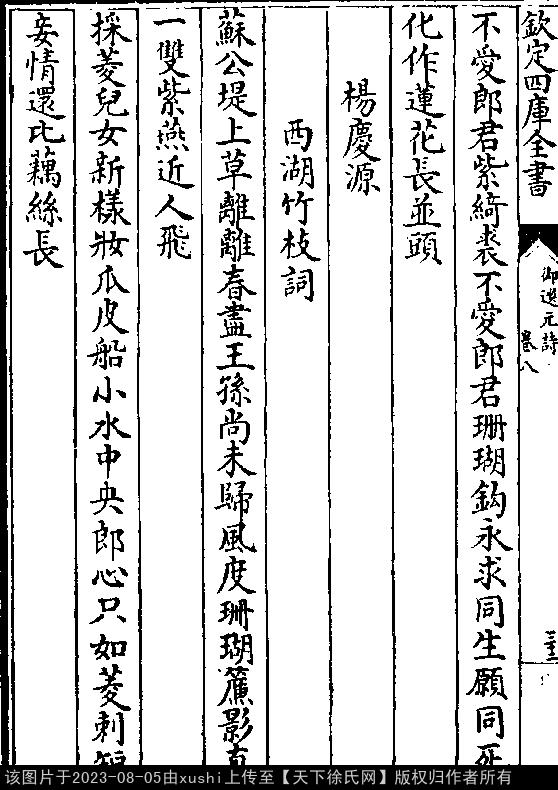 欽定四庫全書
御選元詩
卷八
三十三
不愛郎君紫綺裘不愛郎君珊瑚鈎永求同生願同死
化作蓮花長並頭
楊慶源
西湖竹枝詞
蘇公堤上草離離春盡王孫尚未歸風度珊瑚簾影直
一雙紫燕近人飛
採菱兒女新樣妝瓜皮船小水中央郎心只如菱刺短
妾情還比藕絲長
该图片于2023-08-05由xushi上传至【天下徐氏网】版权归作者所有